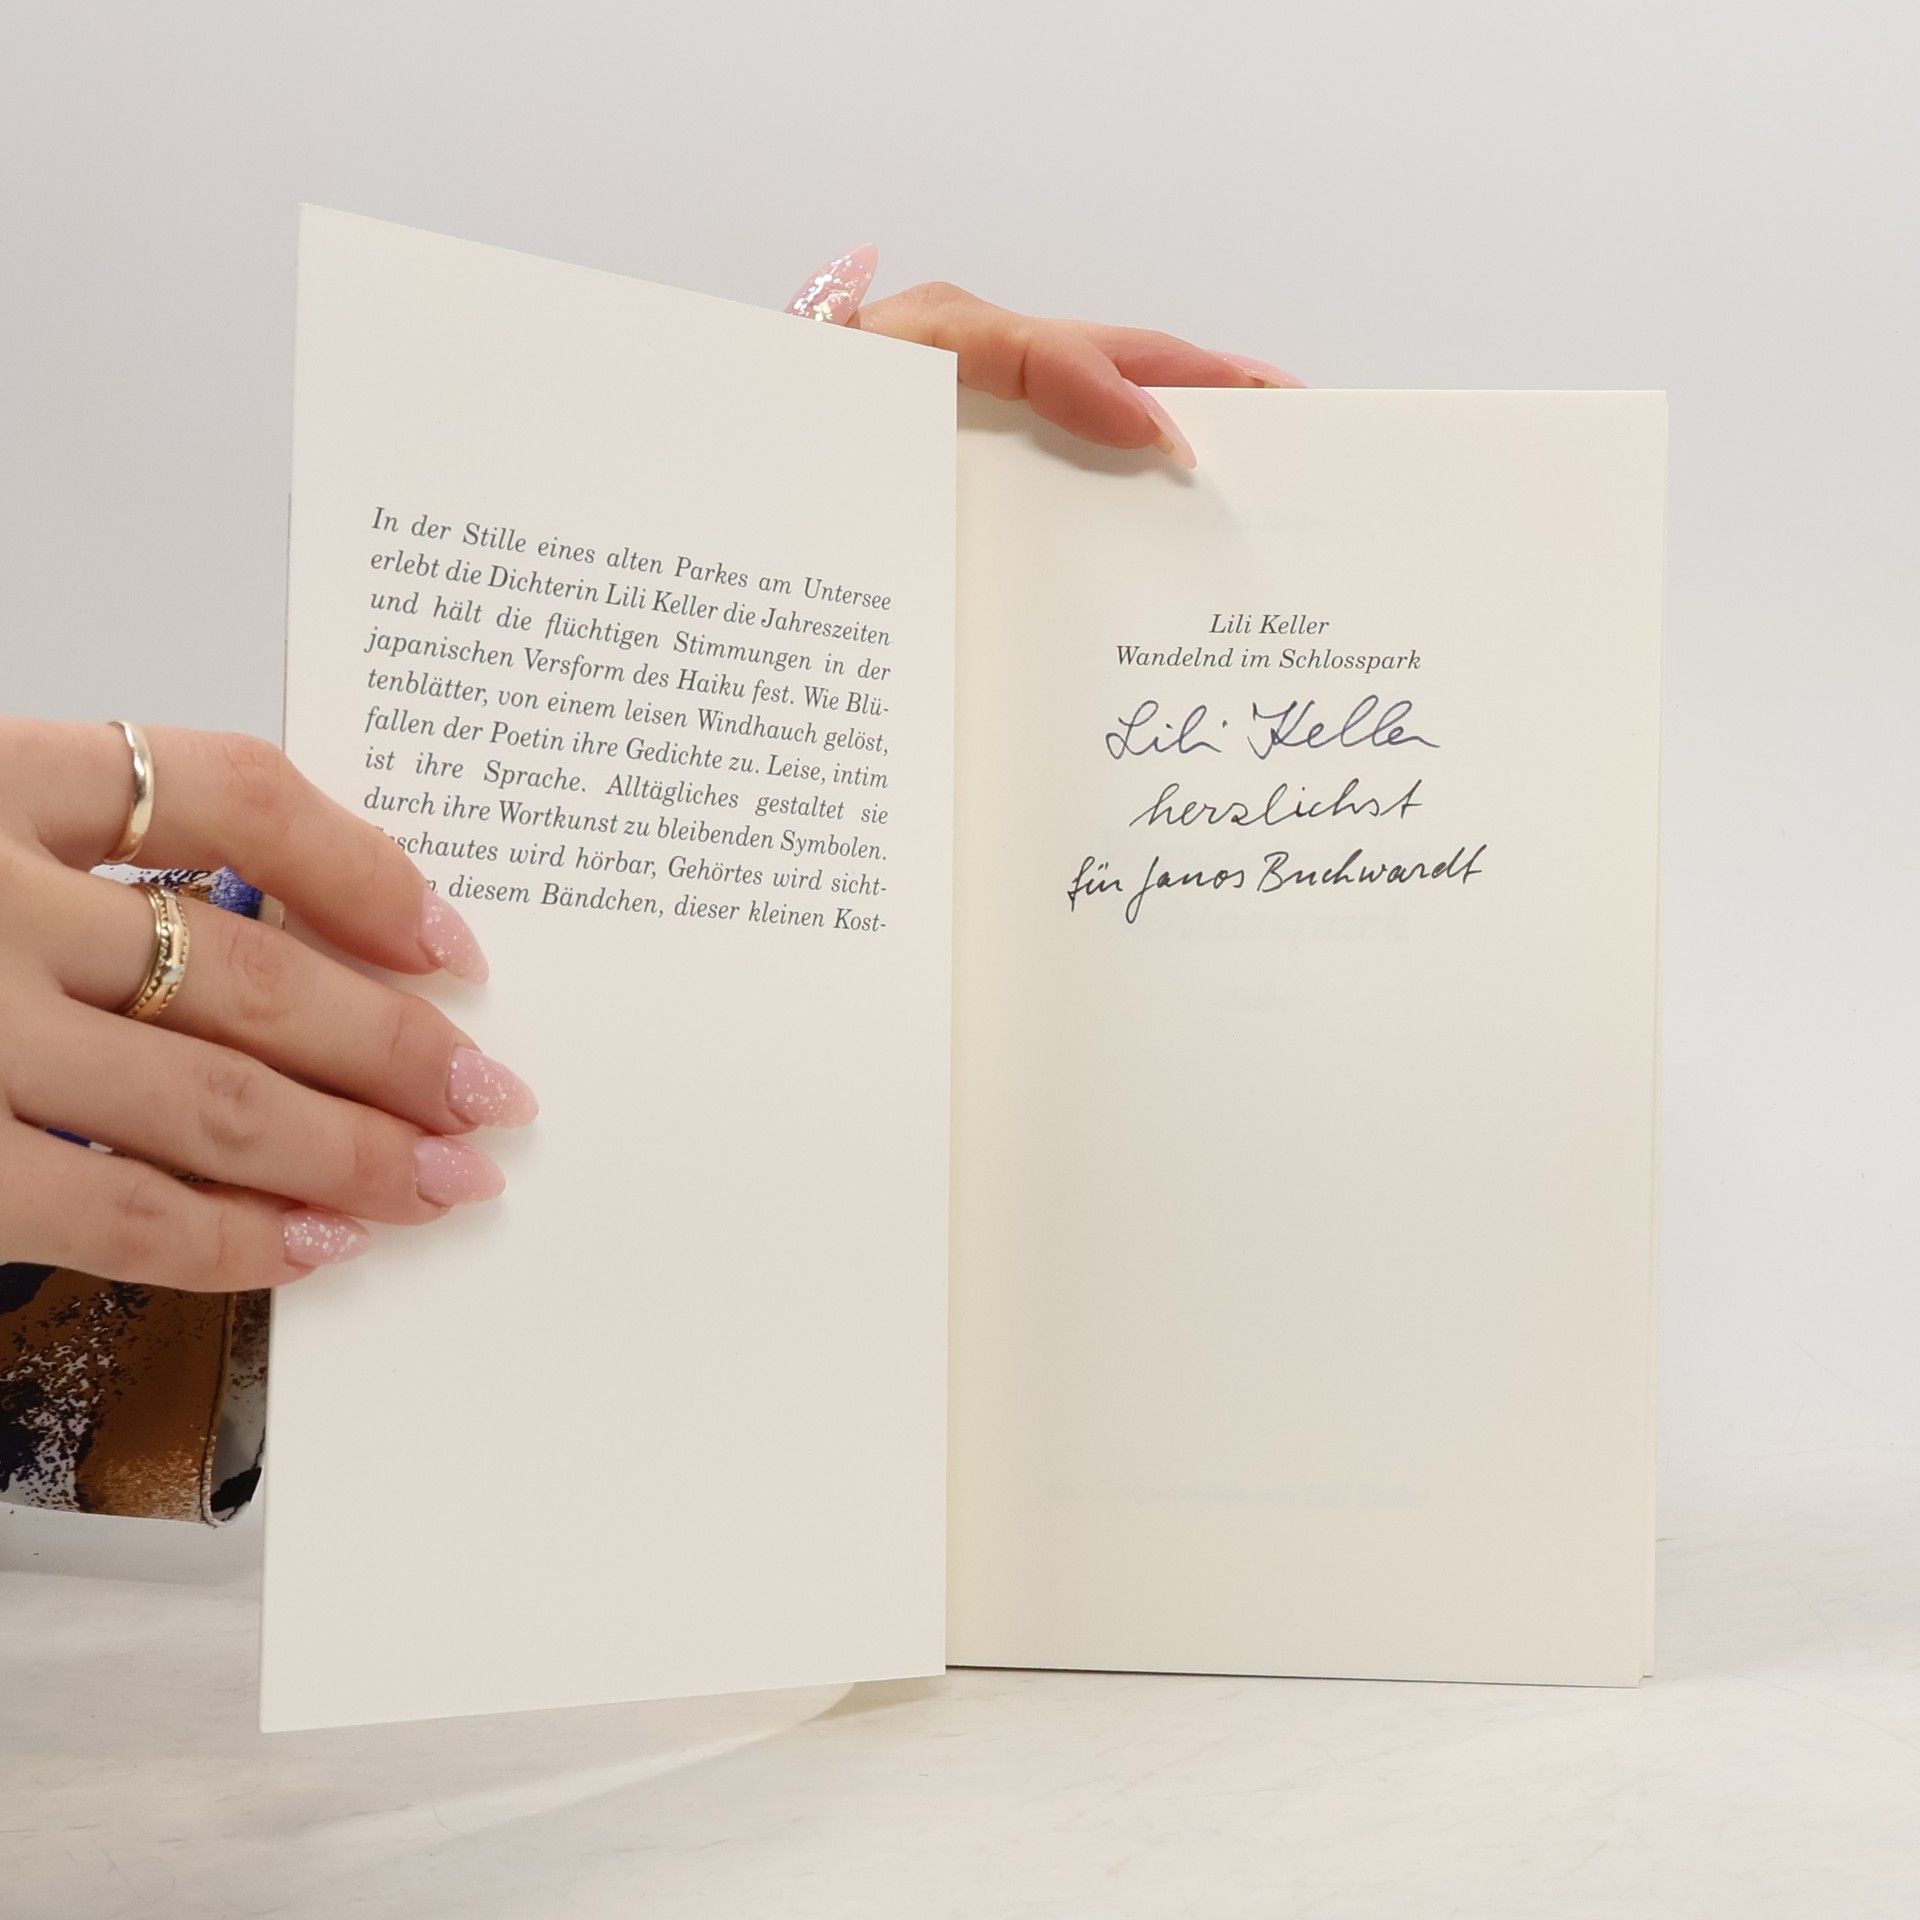 In der Stille eines alten Parkes am Untersee
erlebt die Dichterin Lili Keller die Jahreszeiten
und hält die flüchtigen Stimmungen in der
japanischen Versform des Haiku fest. Wie Blü-
tenblätter, von einem leisen Windhauch gelöst,
fallen der Poetin ihre Gedichte zu. Leise, intim
ist ihre Sprache. Alltägliches gestaltet sie
durch ihre Wortkunst zu bleibenden Symbolen.
wird hörbar, Gehörtes wird sicht-
diesem Bändchen, dieser kleinen Kost-
Lili Keller
Wandelnd im Schlosspark
Lili Keller
herzlichst
für Janos Buchwardt